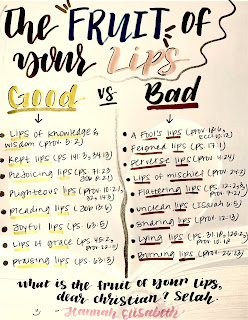 The FRUIT of
your Lips
Good vs Bad
Lips of knowledge &
wisdom (prov. 5:2)
Kept lips (ps 141:3, 34:13)
Rejoicing lips (ps. 71:23
Righteous lips (prov. 10:21,
Pleading lips (Job 13:6)
Joyful lips (ps. 63:5)
Lips of grace (ps. 45:2,
Praising lips (ps. 63:3)
A fool's lips (prov. 18:6,
Feigned lips (ps. 17:1)
perverse lips (prov. 4:24)
Lips of mischief (prov. 24:2)
Flattering lips (ps. 12:2,3,
prov. 7:21)
unclean lips (Isaiah 6:5)
snaring lips (prov. 12:13)
Lying lips (ps. 31:18, 120:2,
prov. 10:18)
Burning lips (prov. 26:23)
What is the fruit of your lips,
dear christian? Selah.
Hannah Elisabeth